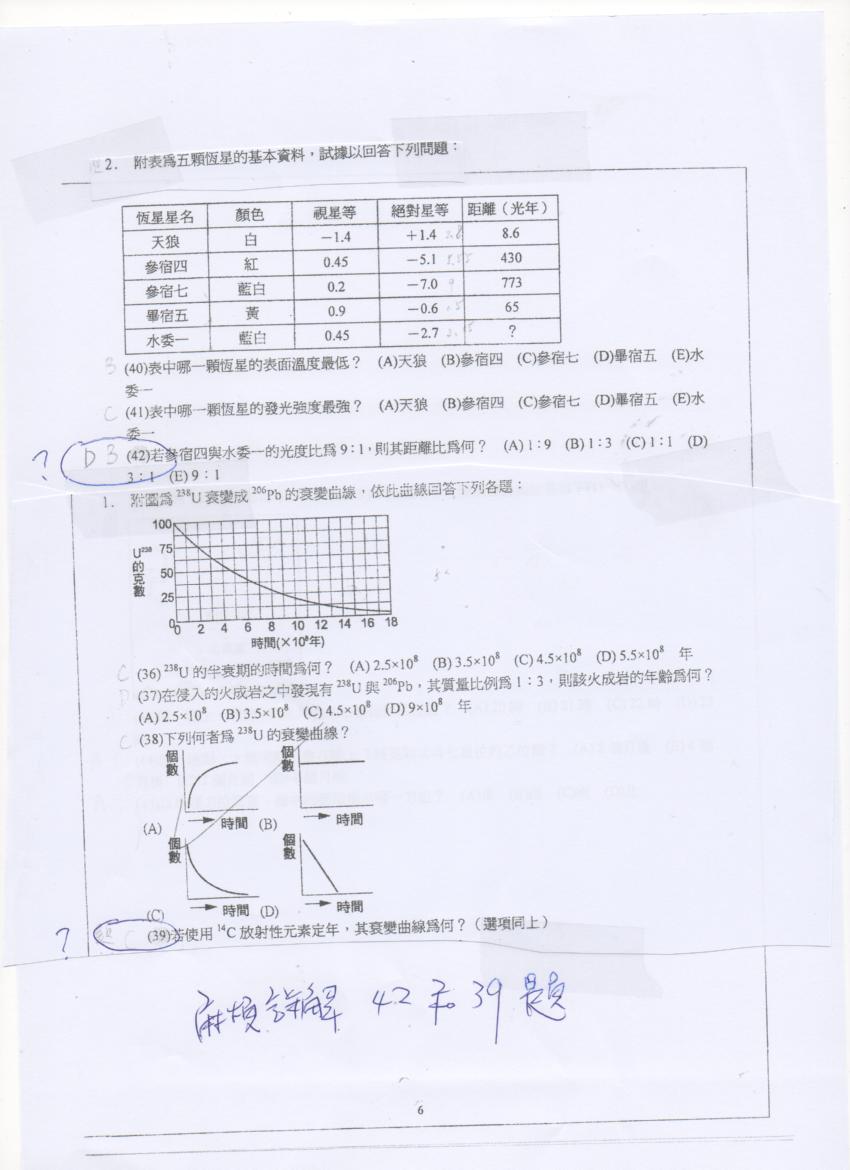 2. 附表為五顆恆星的基本資料，試據以回答下列問題：
恆星星名 顏色 視星等 絕對星等 距離（光年）
天狼 白 －1.4 ＋1.4 8.6
參宿四 紅 0.45 －5.1 430
參宿七 藍白 0.2 －7.0 773
畢宿五 黃 0.9 －0.6 65
水委一 藍白 0.45 －2.7 ?
B (40)表中哪一顆恆星的表面溫度最低？ (A)天狼 (B)參宿四 (C)參宿七 (D)畢宿五 (E)水
委一
C (41)表中哪一顆恆星的發光強度最強？ (A)天狼 (B)參宿四 (C)參宿七 (D)畢宿五 (E)水
委一
? D B (42)若參宿四與水委一的光度比為 9：1，則其距離比為何？ (A) 1：9 (B) 1：3 (C) 1：1 (D)
3：1 (E) 9：1
1. 附圖為 ²³⁸U 衰變成 ²⁰⁶Pb 的衰變曲線，依此曲線回答下列各題：
100
75
50
25
0
U²³⁸的克數
0 2 4 6 8 10 12 14 16 18
時間(×10⁸年)
C (36) ²³⁸U 的半衰期的時間為何？ (A) 2.5×10⁸ (B) 3.5×10⁸ (C) 4.5×10⁸ (D) 5.5×10⁸ 年
D (37)在侵入的火成岩之中發現有 ²³⁸U 與 ²⁰⁶Pb，其質量比例為 1：3，則該火成岩的年齡為何？
(A) 2.5×10⁸ (B) 3.5×10⁸ (C) 4.5×10⁸ (D) 9×10⁸ 年
C (38)下列何者為 ²³⁸U 的衰變曲線？
個數 個數
(A) 時間 (B) 時間
個數 個數
(C) 時間 (D) 時間
? C (39)若使用 ¹⁴C 放射性元素定年，其衰變曲線為何？（選項同上）
麻煩詳解 42 和 39 題
6